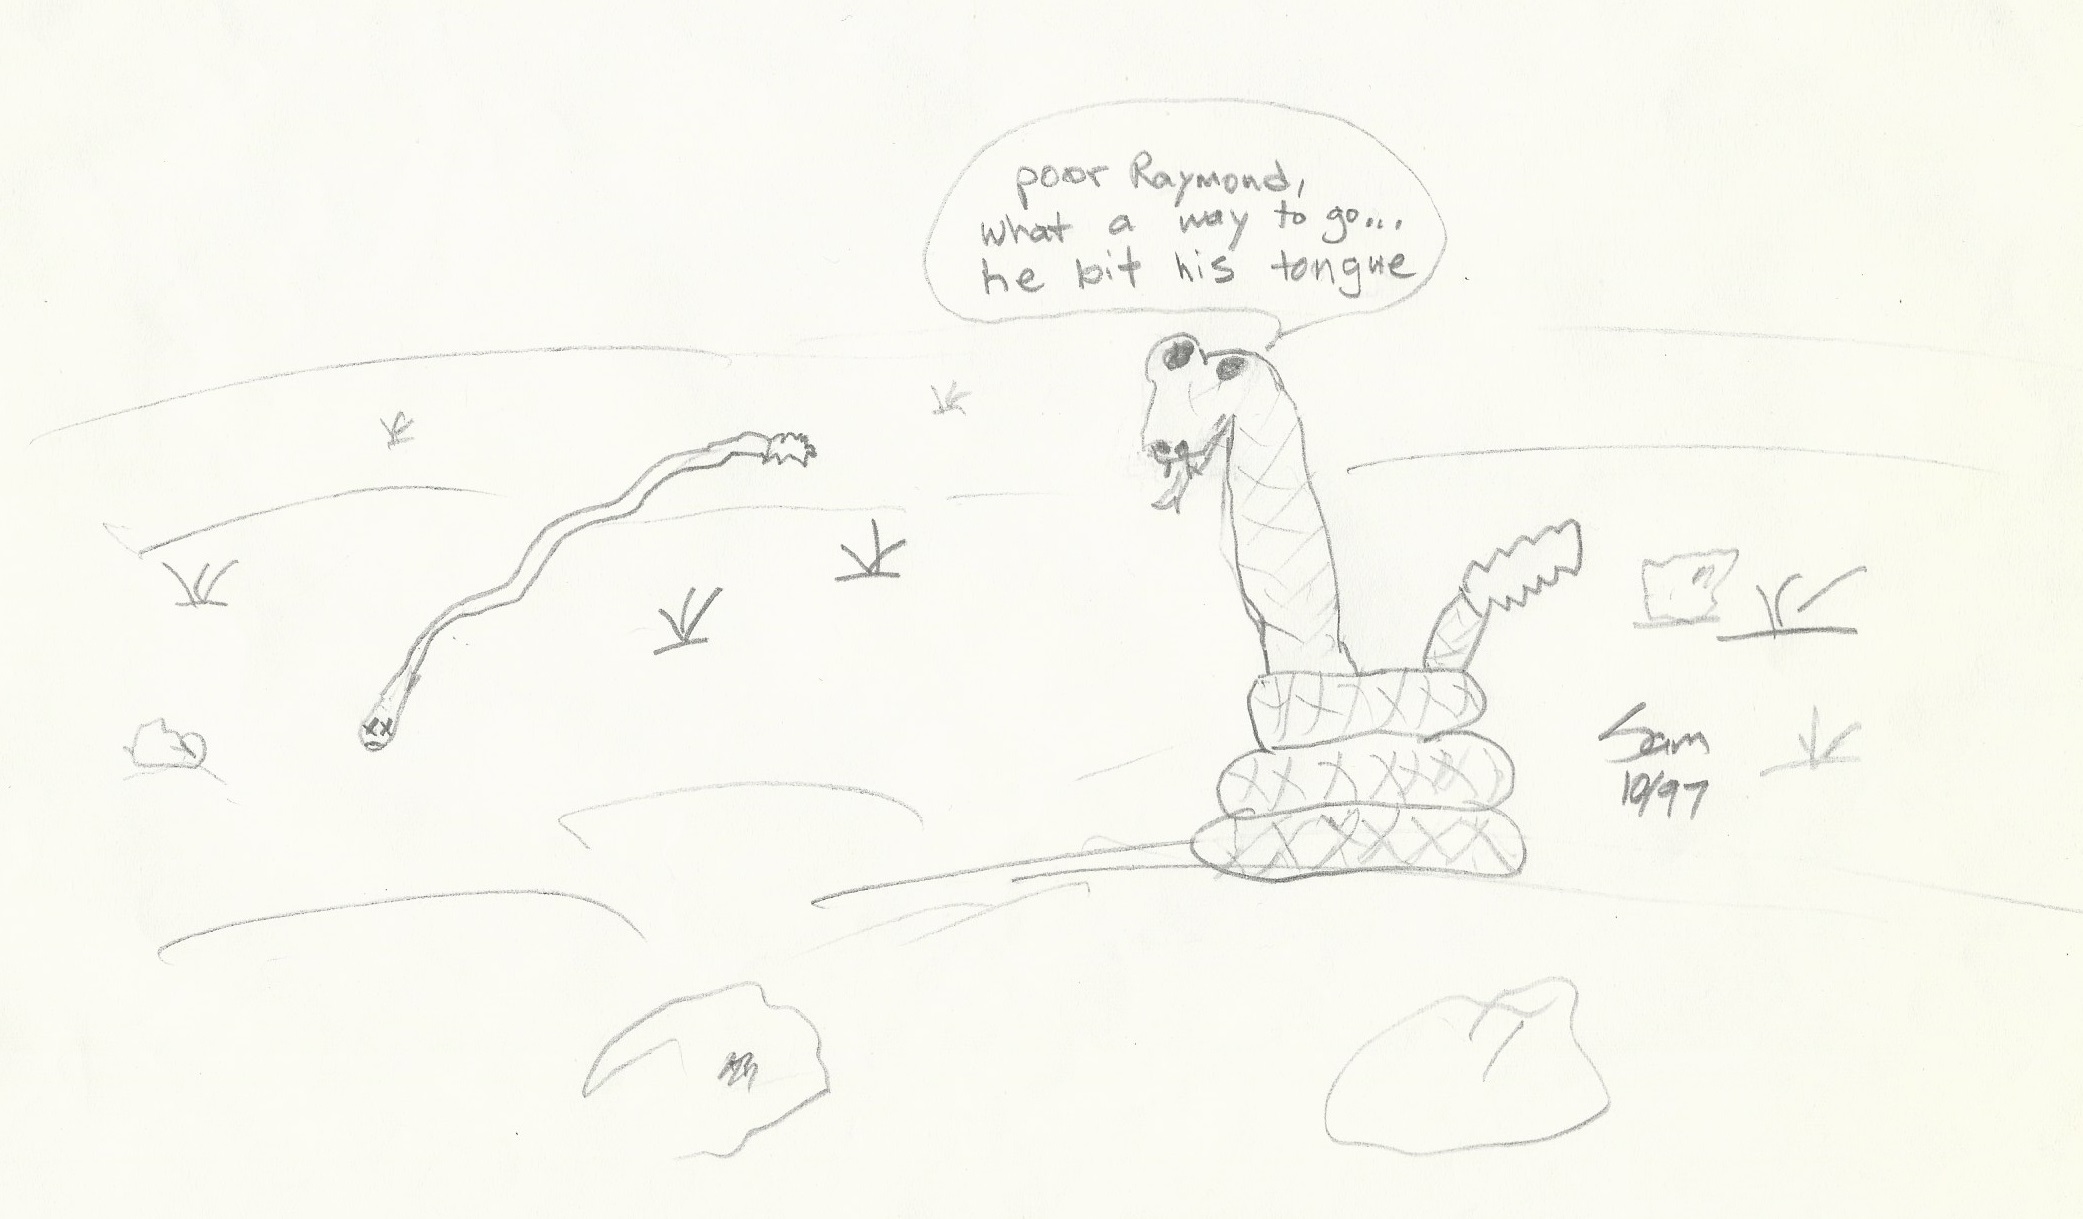 poor Raymond,
what a way to go...
he bit his tongue
Sam
10/97